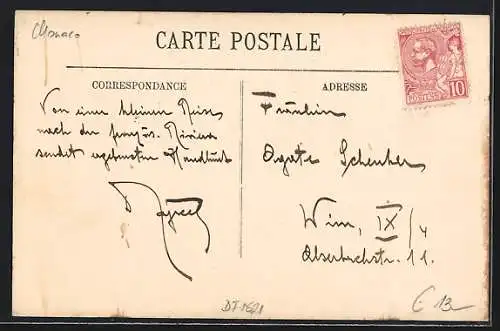 Monaco
CARTE POSTALE
CORRESPONDANCE
Von einer kleinen Reise
nach der französ. Riviera
sendet ergebensten Handkuß
ADRESSE
Fräulein
Agate Schenker
Wien, IX/4
Alserbachstr. 11.
POSTES
10
€ 13